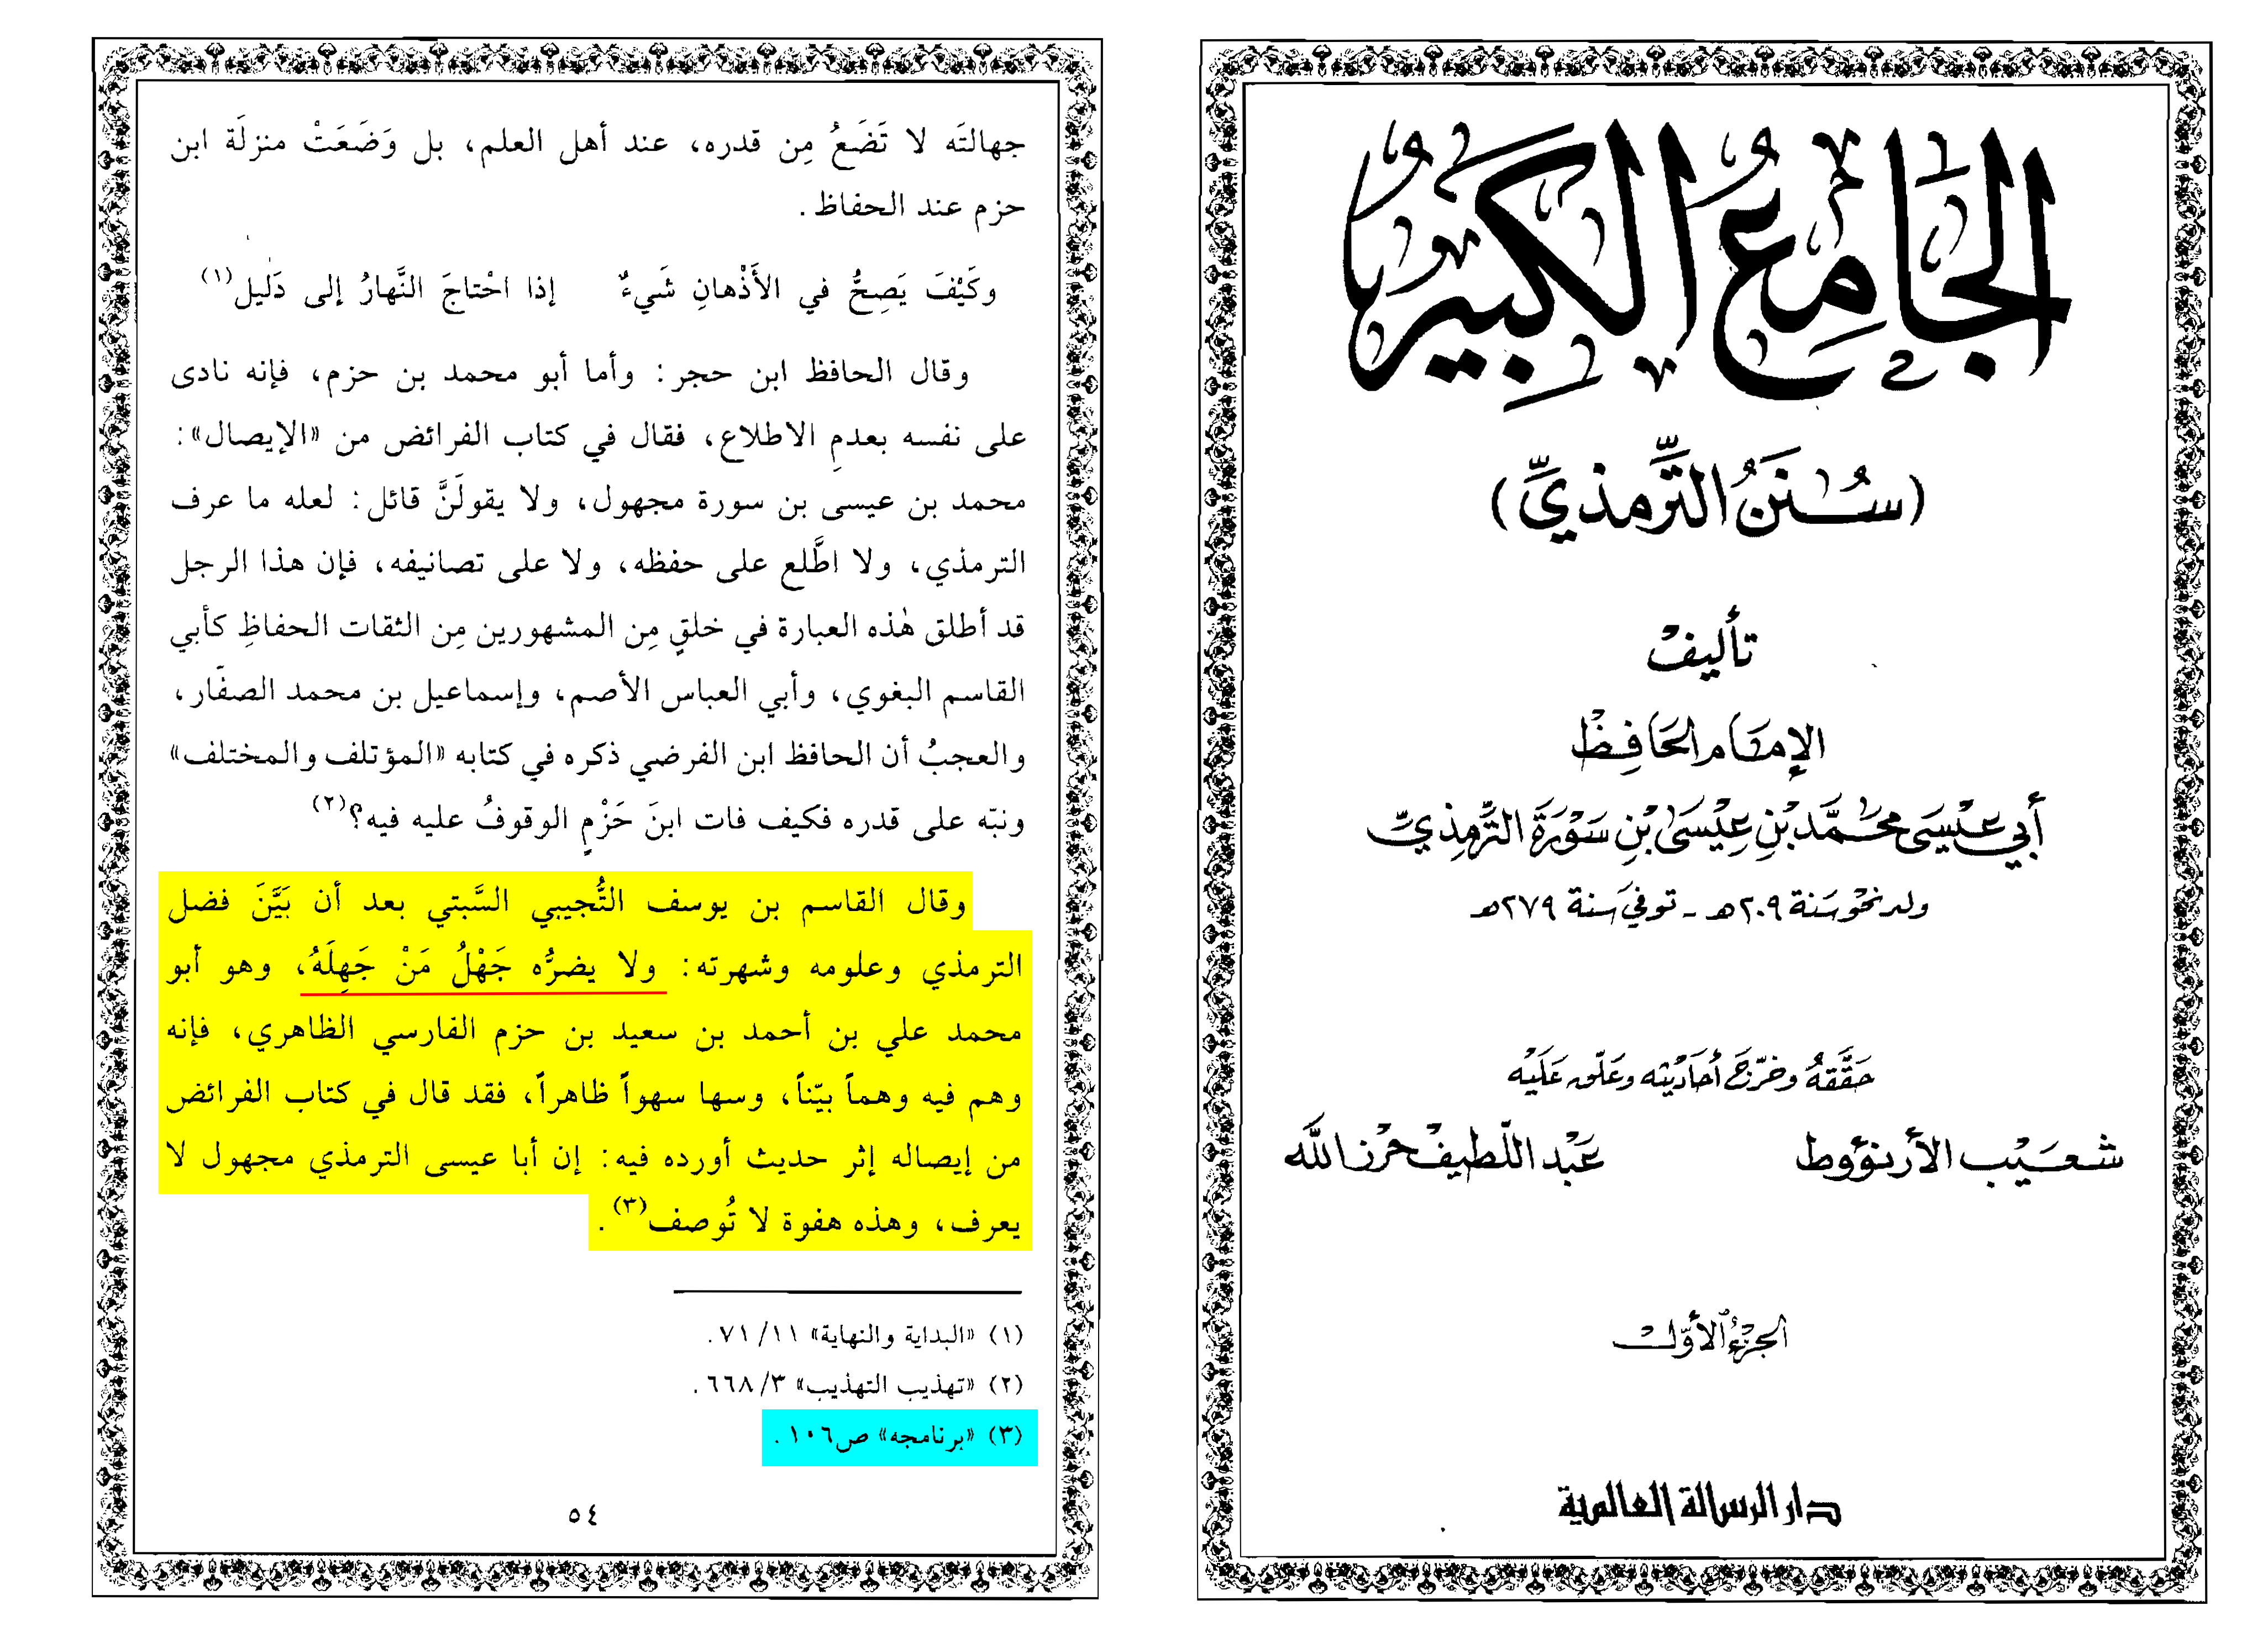 الجامع الكبير
(سُنَنُ التِّرمذيِّ)
تأليف
الإمام الحافظ
أبي عيسى محمد بن عيسى بن سورة الترمذي
ولد نحو سنة ٢٠٩هـ - توفي سنة ٢٧٩هـ
حققه وخرج أحاديثه وعلق عليه
شعيب الأرنؤوط عبد اللطيف حرز الله
الجزء الأول
دار الرسالة العالمية
جهالتَه لا تَضَعُ مِن قدره، عند أهل العلم، بل وَضَعَتْ منزلَة ابن
حزم عند الحفاظ.
وكَيْفَ يَصِحُّ في الأَذْهانِ شَيءٌ إذا احْتاجَ النَّهارُ إلى دَليل(١)
وقال الحافظ ابن حجر: وأما أبو محمد بن حزم، فإنه نادى
على نفسه بعدمِ الاطلاع، فقال في كتاب الفرائض من «الإيصال»:
محمد بن عيسى بن سورة مجهول، ولا يقولَنَّ قائل: لعله ما عرف
الترمذي، ولا اطَّلع على حفظه، ولا على تصانيفه، فإن هذا الرجل
قد أطلق هٰذه العبارة في خلقٍ مِن المشهورين مِن الثقات الحفاظِ كأبي
القاسم البغوي، وأبي العباس الأصم، وإسماعيل بن محمد الصفَّار،
والعجبُ أن الحافظ ابن الفرضي ذكره في كتابه «المؤتلف والمختلف»
ونبّه على قدره فكيف فات ابنَ حَزْمٍ الوقوفُ عليه فيه؟(٢)
وقال القاسم بن يوسف التُّجيبي السَّبتي بعد أن بَيَّنَ فضل
الترمذي وعلومه وشهرته: ولا يضرُّه جَهْلُ مَنْ جَهِلَهُ، وهو أبو
محمد علي بن أحمد بن سعيد بن حزم الفارسي الظاهري، فإنه
وهم فيه وهماً بيّناً، وسها سهواً ظاهراً، فقد قال في كتاب الفرائض
من إيصاله إثر حديث أورده فيه: إن أبا عيسى الترمذي مجهول لا
يعرف، وهذه هفوة لا تُوصف(٣).
(١) «البداية والنهاية» ١١/ ٧١.
(٢) «تهذيب التهذيب» ٣/ ٦٦٨.
(٣) «برنامجه» ص١٠٦.
٥٤